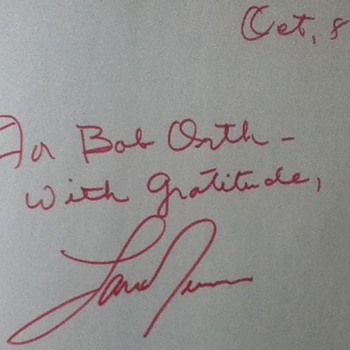 Oct, 8
For Bob Orth -
With gratitude,